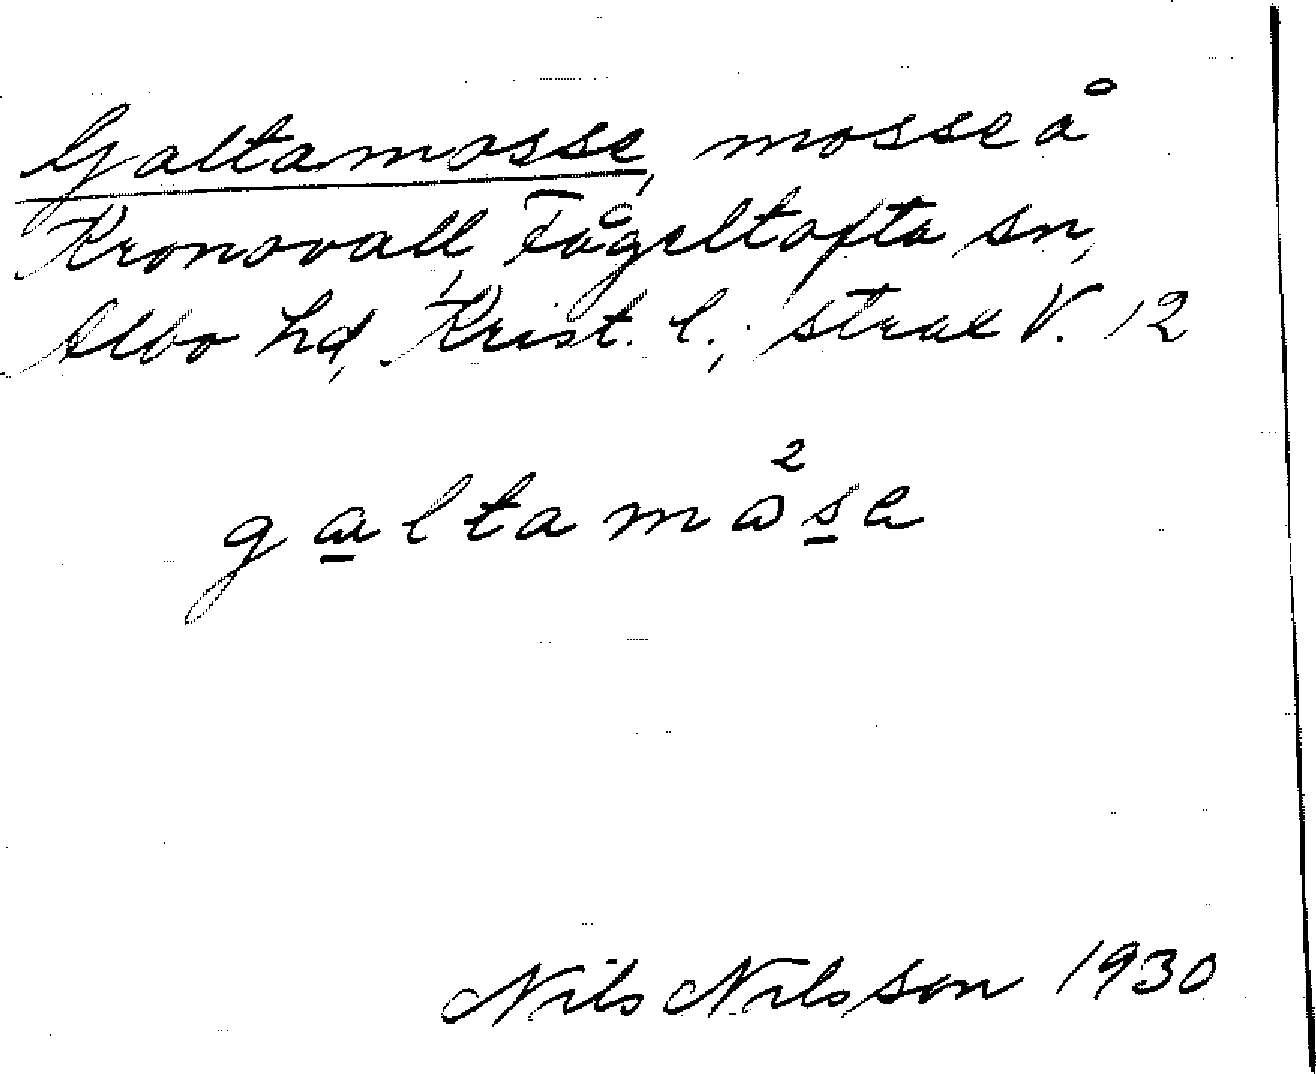 Galtamosse, mosse å
Kronovall, Fågeltofta sn,
Albo hd, Krist. l.; strax V. 12
galtamå²se
Nils Nilsson 1930